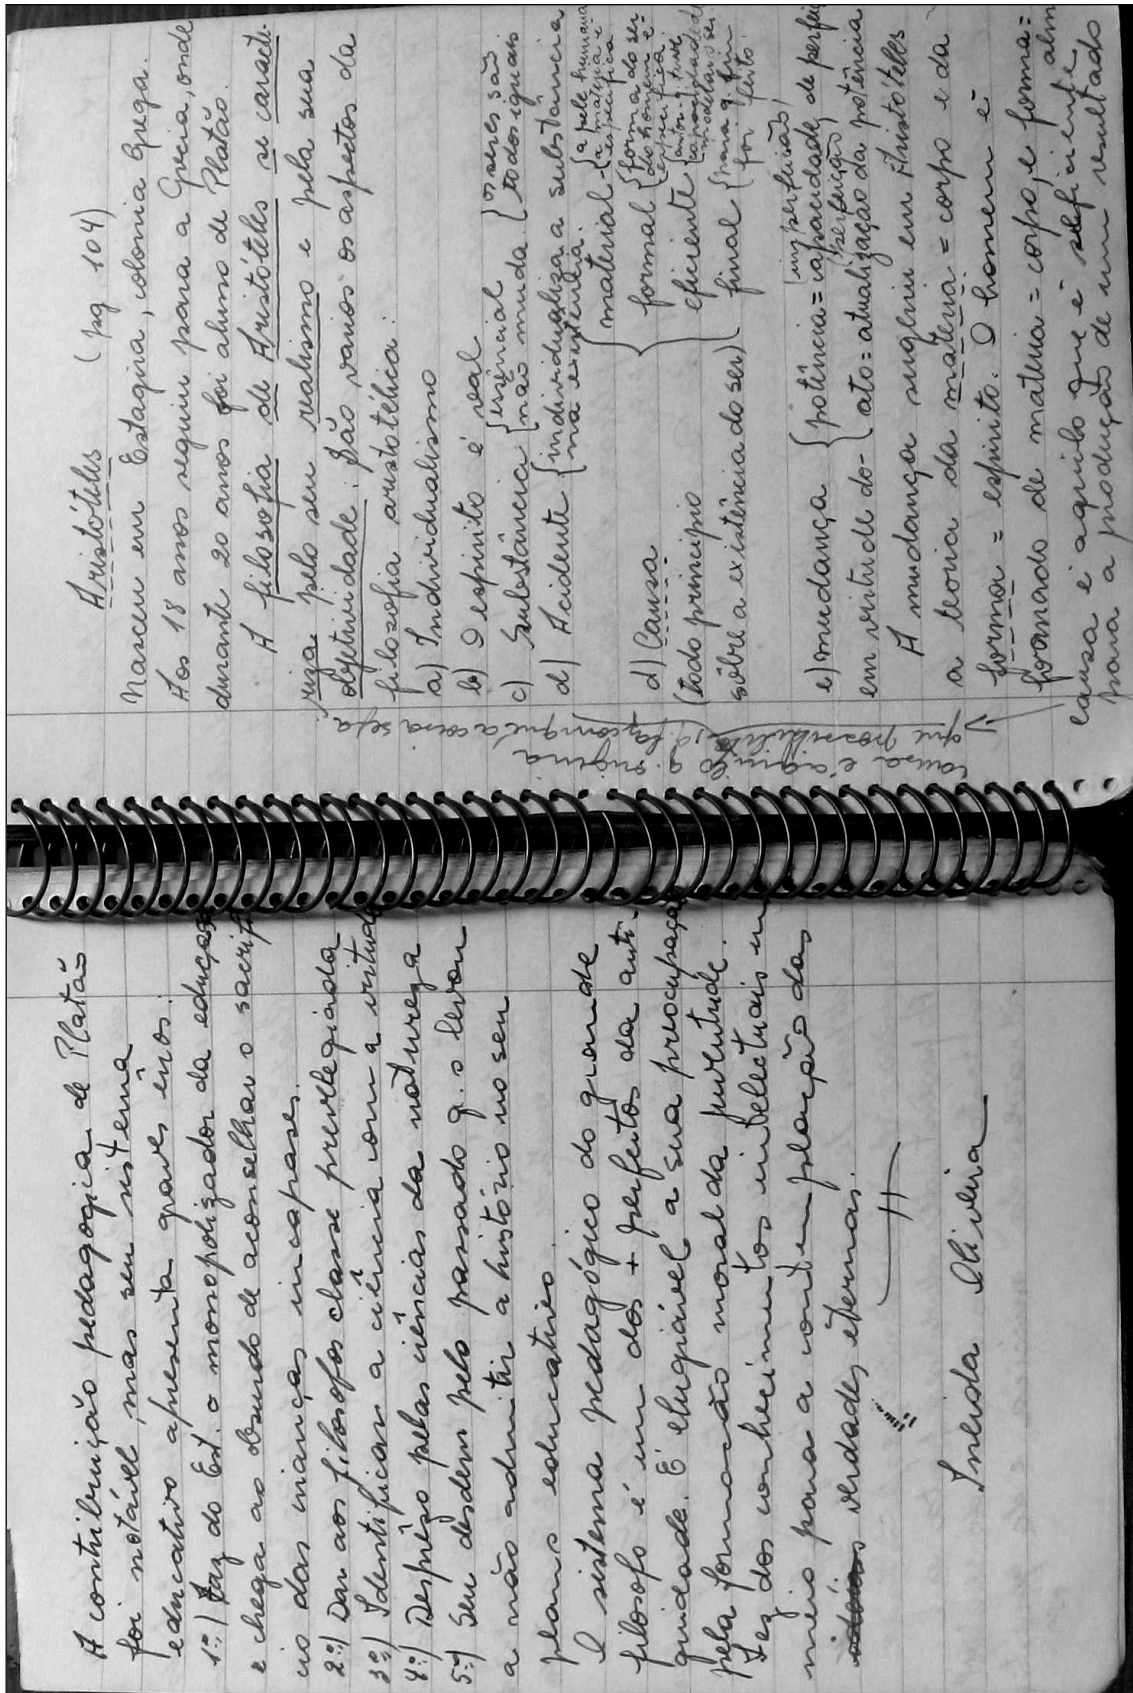 A contribuição pedagogica de Platão
foi notável, mas seu sistema
educativo apresenta graves êrros:
1º) Faz do Est. o monopolizador da educação
e chega ao absurdo de aconselhar o sacrifí
cio das crianças incapases.
2º) Dar aos filosofos classe previlegiada
3º) Identificar a ciência com a virtude
4º) Desprêso pelas ciências da natureza
5º) Seu desdem pelo passado q. o levou
a não admitir a história no seu
plano educativo.
O sistema pedagógico do grande
filosofo é um dos + perfeitos da anti-
guidade. É elogiável a sua preocupação
pela formação moral da juventude.
Fez dos conhecimentos intelectuais um
meio para a contemplação das
verdades eternas.
Ineida Oliveira
Aristóteles (pg 104)
Nasceu em Estagira, colonia grega.
Aos 18 anos seguiu para a Grecia, onde
durante 20 anos foi aluno de Platão.
A filosofia de Aristóteles se caracte-
riza pelo seu realismo e pela sua
objetividade. São varios os aspectos da
filozofia aristotélica:
a) Individualismo
b) O espirito é real
c) Substância { essencial
não muda { os seres são
todos iguais
d) Acidente { individualiza a substância
na existência.
d) Causa
(todo principio
sôbre a existência do ser)
{ material { a pele humana
a materia é
especifica
formal { forma do ser
do homem é
especifica
eficiente { autor q. teve
capacidade de
modelar o ser
final { para q. fim
foi feito.
e) mudança { potência = capacidade de perfei
{ imperfeição,
perfeição
em virtude do- { ato = atualização da potência
A mudança sugeriu em Aristóteles
a teoria da matéria = corpo e da
forma = espirito. O homem é
formado de materia = corpo, e forma =
alma
causa é aquilo que é suficiente
para a produção de um resultado
causa é aquilo q. origina
que possibilita, q. faz com que a coisa seja